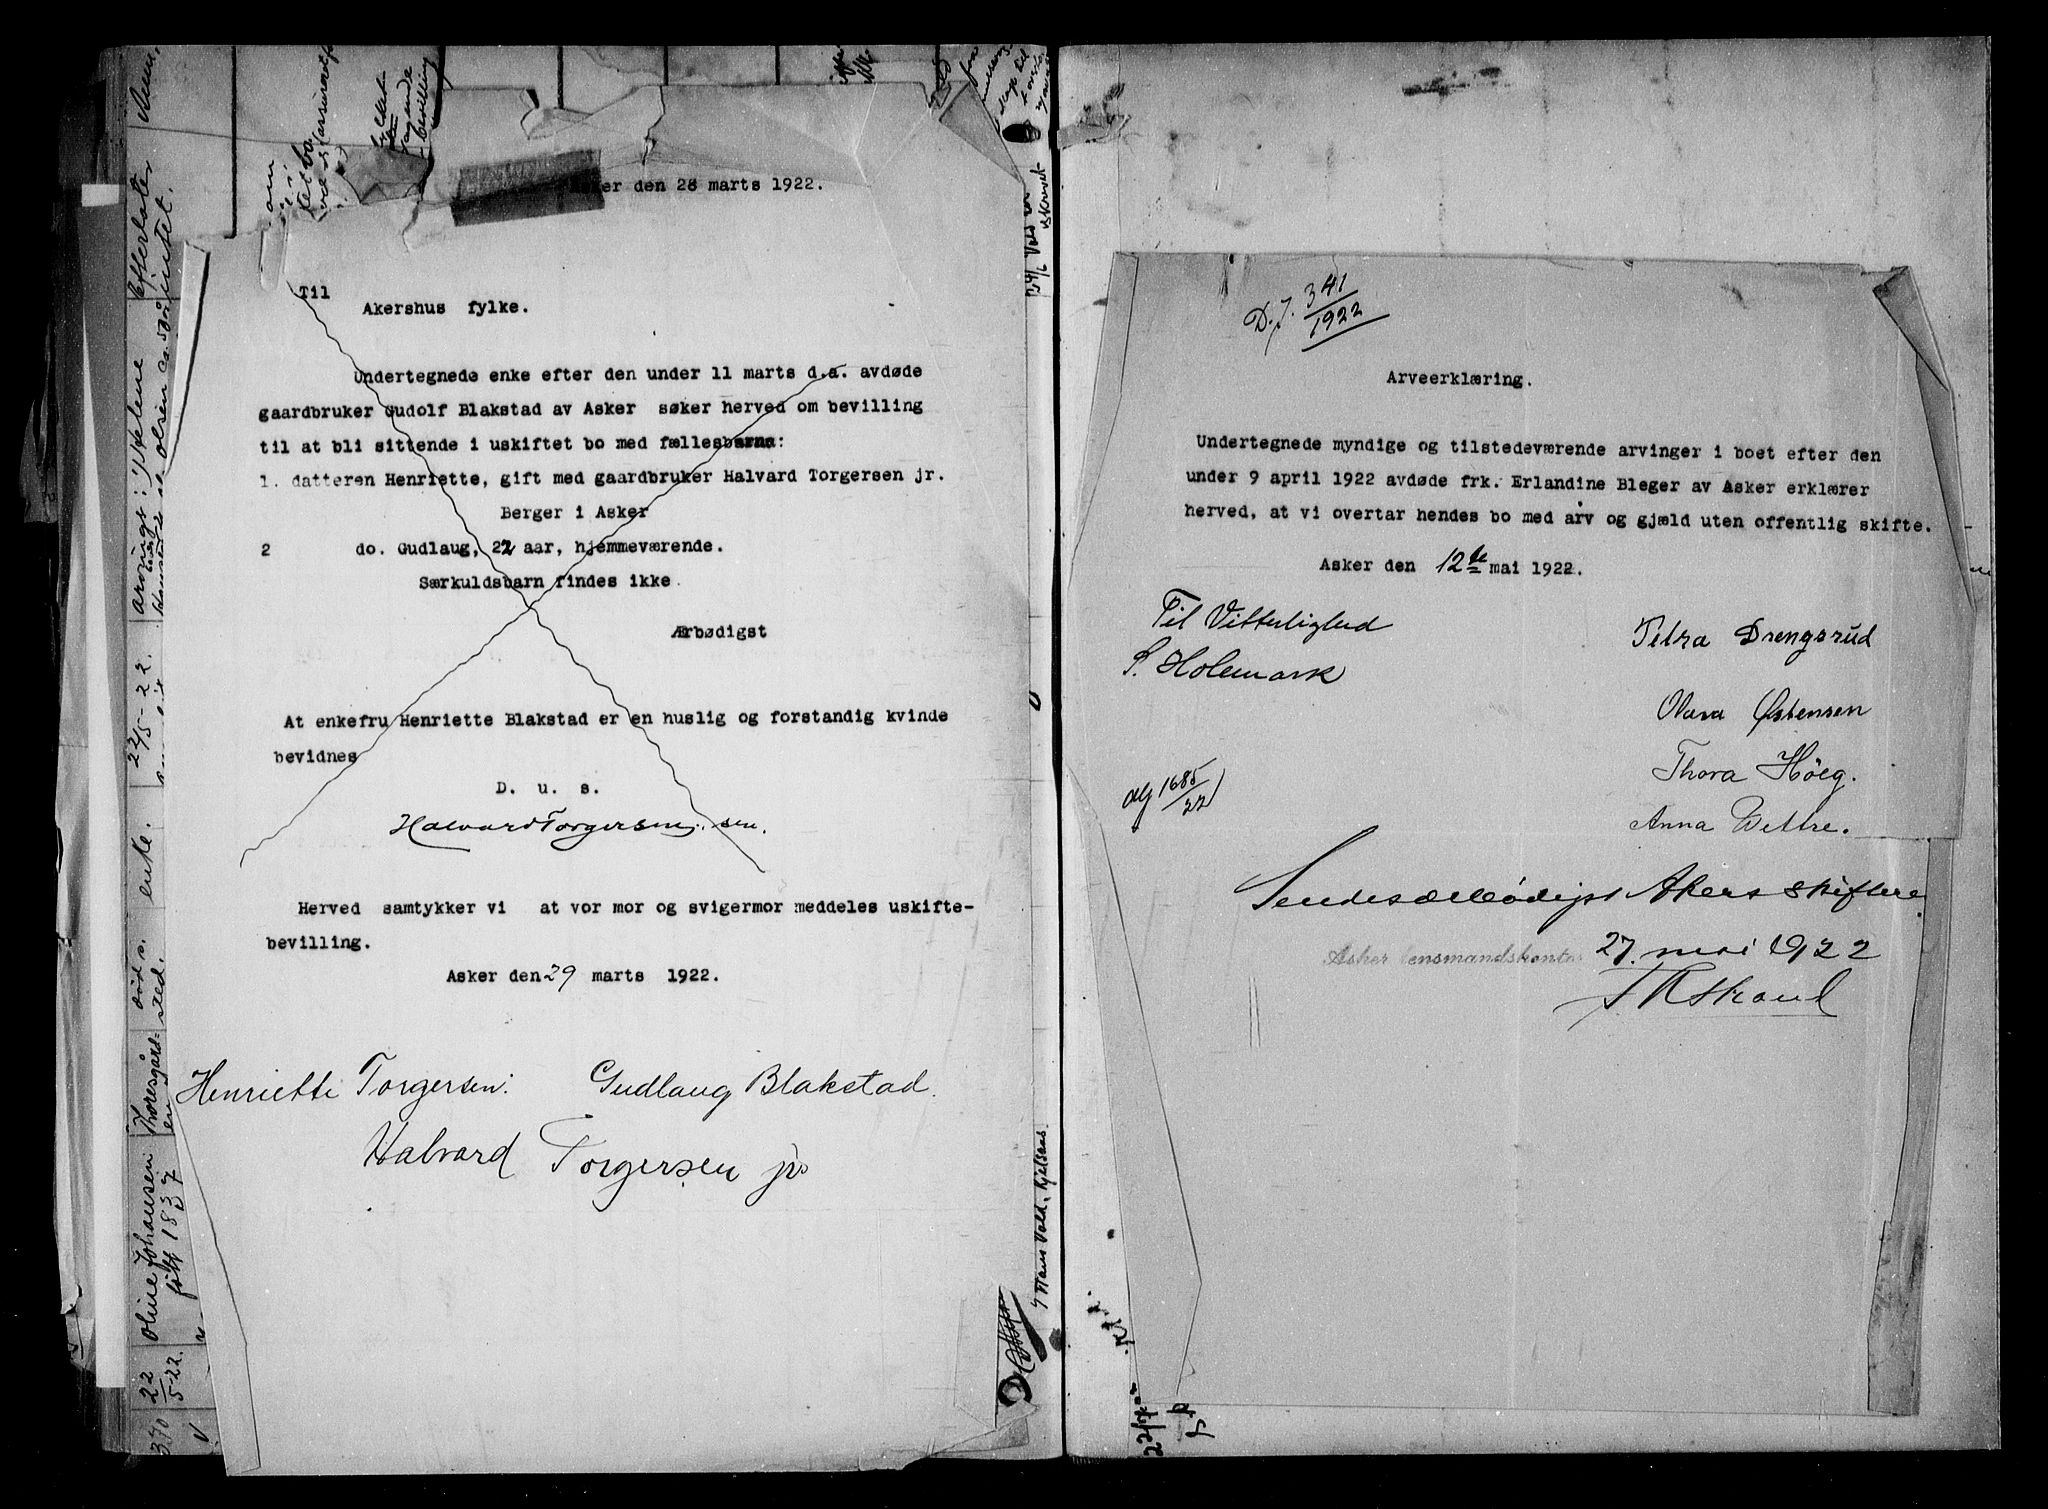 den 28 marts 1922.
Til
Akershus fylke.
Undertegnede enke efter den under 11 marts d.a. avdøde
gaardbruker Gudolf Blakstad av Asker søker herved om bevilling
til at bli sittende i uskiftet bo med fællesbarna:
1. datteren Henriette, gift med gaardbruker Halvard Torgersen jr.
Berger i Asker
2 do. Gudlaug, 22 aar, hjemmeværende.
Særkuldsbarn findes ikke
Ærbødigst
At enkefru Henriette Blakstad er en huslig og forstandig kvinde
bevidnes
D. u. s.
Halvard Torgersen, sen.
Herved samtykker vi at vor mor og svigermor meddeles uskifte-
bevilling.
Asker den 29 marts 1922.
Henriette Torgersen. Gudlaug Blakstad.
Halvard Torgersen jr
370 22/5-22. Oline Johansen Thoresgård- død s. enke. 2/5-22. arvingt: Efterlater
født 1837 en sted. intet.
Hans Vold, Kjelsaas
D. J. 341/1922
Arveerklæring.
Undertegnede myndige og tilstedeværende arvinger i boet efter den
under 9 april 1922 avdøde frk. Erlandine Bleger av Asker erklærer
herved, at vi overtar hendes bo med arv og gjæld uten offentlig skifte.
Asker den 12te mai 1922.
Til Vitterlighed
S. Holemark
Petra Drengsrud
Olava Østensen
Thora Höeg.
Anna Wettre.
1685/22
Sendes ærbødigst Akers skifter.
Asker lensmandskontor 27. mai 1922